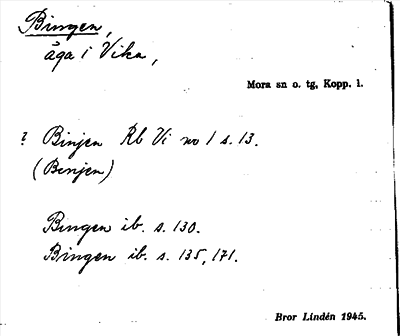 Bingen,
åga i Vika,
Mora sn o. tg, Kopp. l.
? Binjen Rb Vi no 1 s. 13.
(Benjen)
Bingen ib. s. 130.
Bingen ib. s. 135, 171.
Bror Lindén 1945.